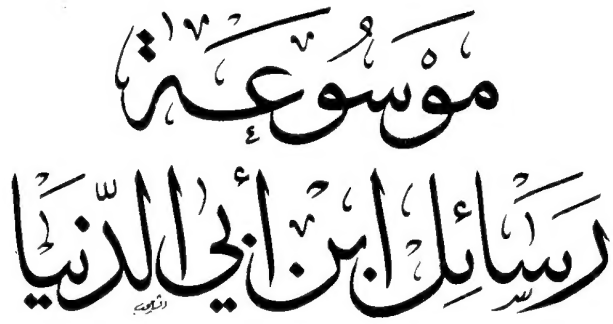 مَوْسُوعَة
رَسَائِل ابْن أَبِي الدُّنْيَا